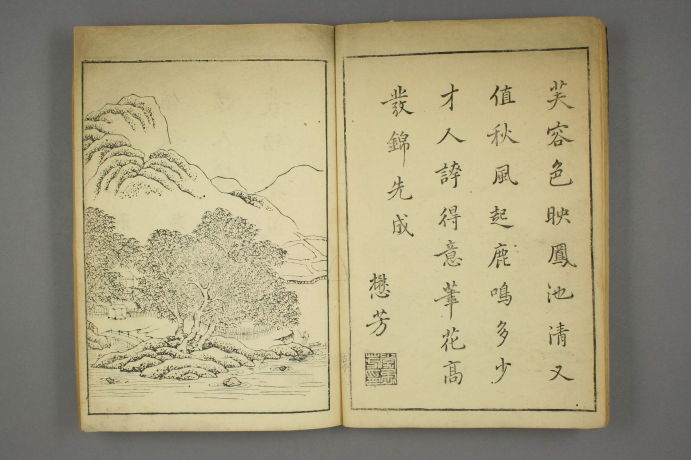 芙容色映鳳池清又
值秋風起鹿鳴多少
才人誇得意筆花髙
發錦先成
懋芳